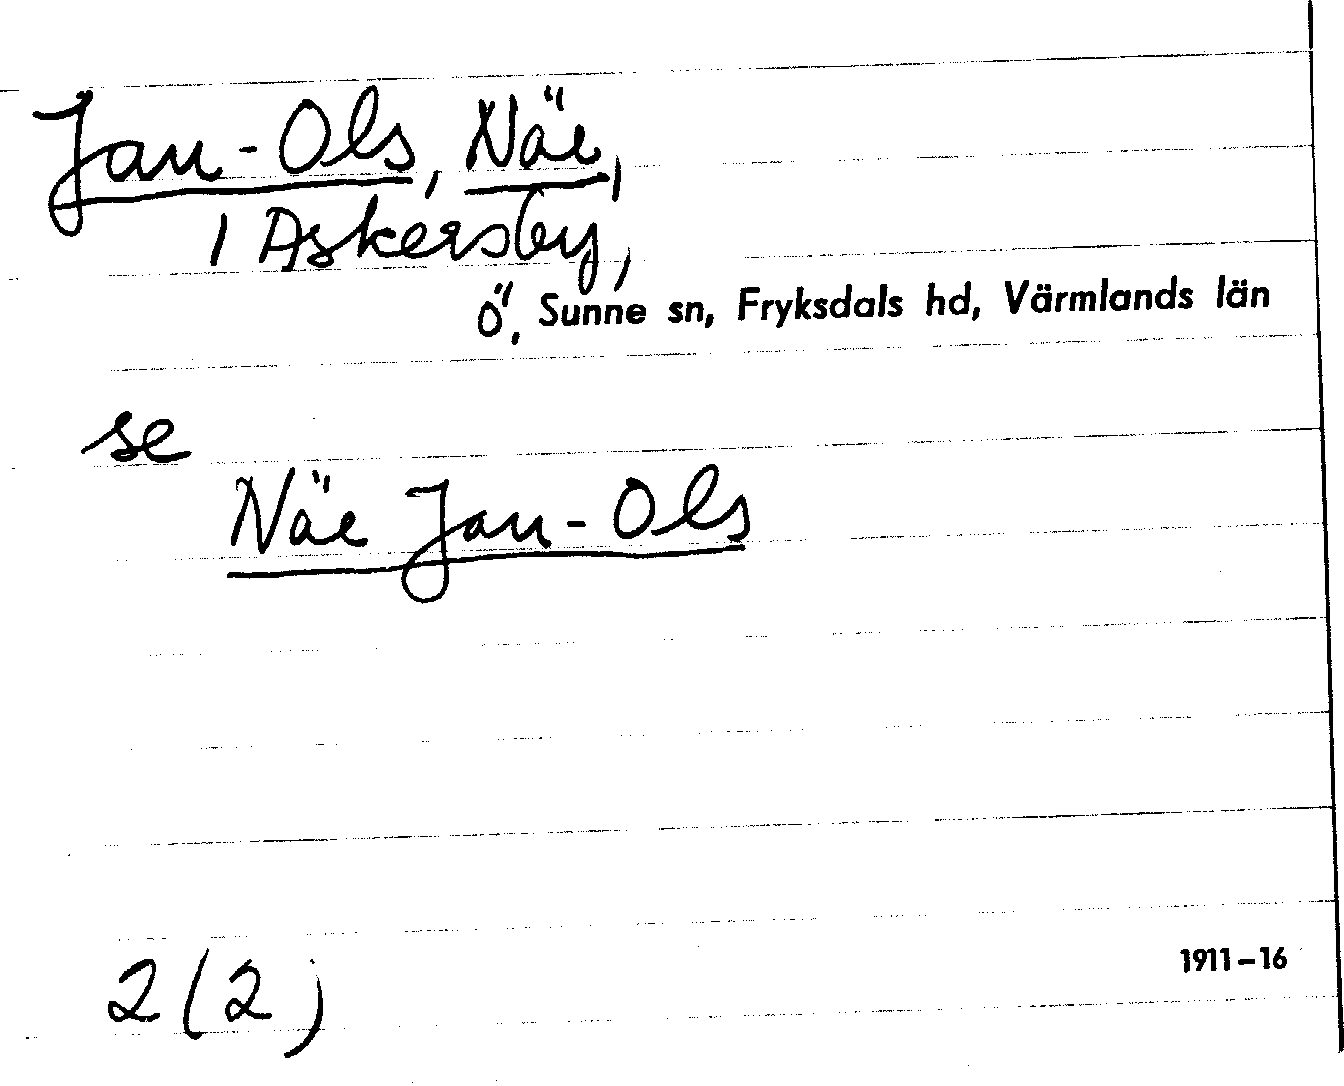 Jan-Ols, Näe,
i Askersby,
Ö, Sunne sn, Fryksdals hd, Värmlands län
se
Näe Jan-Ols
1911-16
2(2)